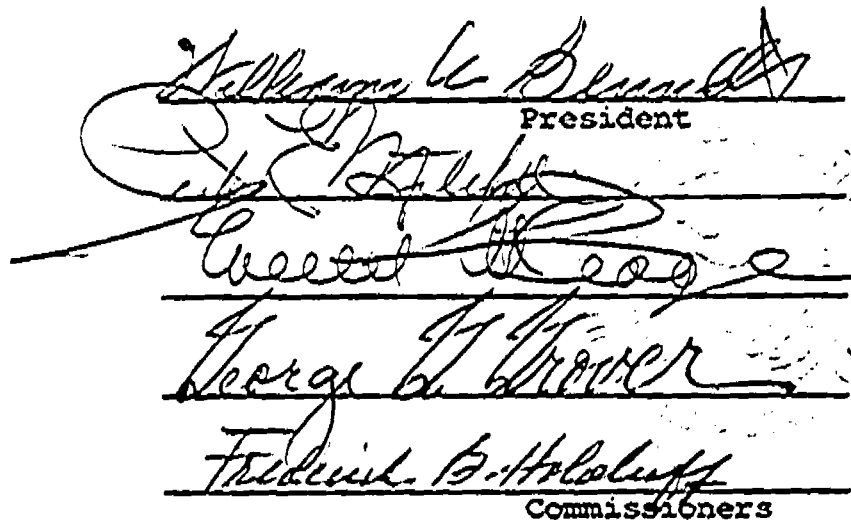 William M. Bennett
President
Peter E. Mitchell
George G. Grover
Frederick B. Holoboff
Commissioners